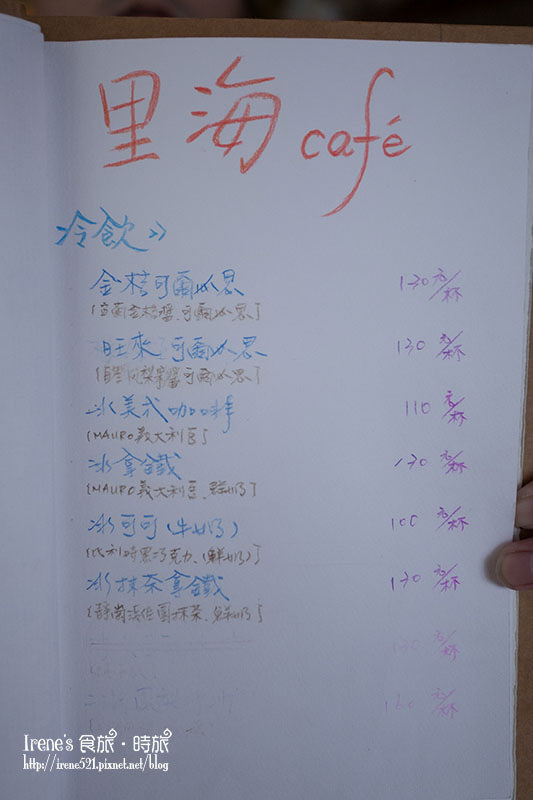 里海 café
冷飲 >>
金桔可爾必思 130元/杯
(宜蘭金桔醬、可爾必思)
旺來可爾必思 130元/杯
(自製鳳梨果醬、可爾必思)
冰美式咖啡 110元/杯
(MAURO義大利豆)
冰拿鐵 130元/杯
(MAURO義大利豆、鮮奶)
冰可可(牛奶) 100元/杯
(比利時黑巧克力、鮮奶)
冰抹茶拿鐵 130元/杯
(靜岡抹茶、鮮奶)
130元/杯
160元/杯
Irene's 食旅·時旅
http://irene521.pixnet.net/blog